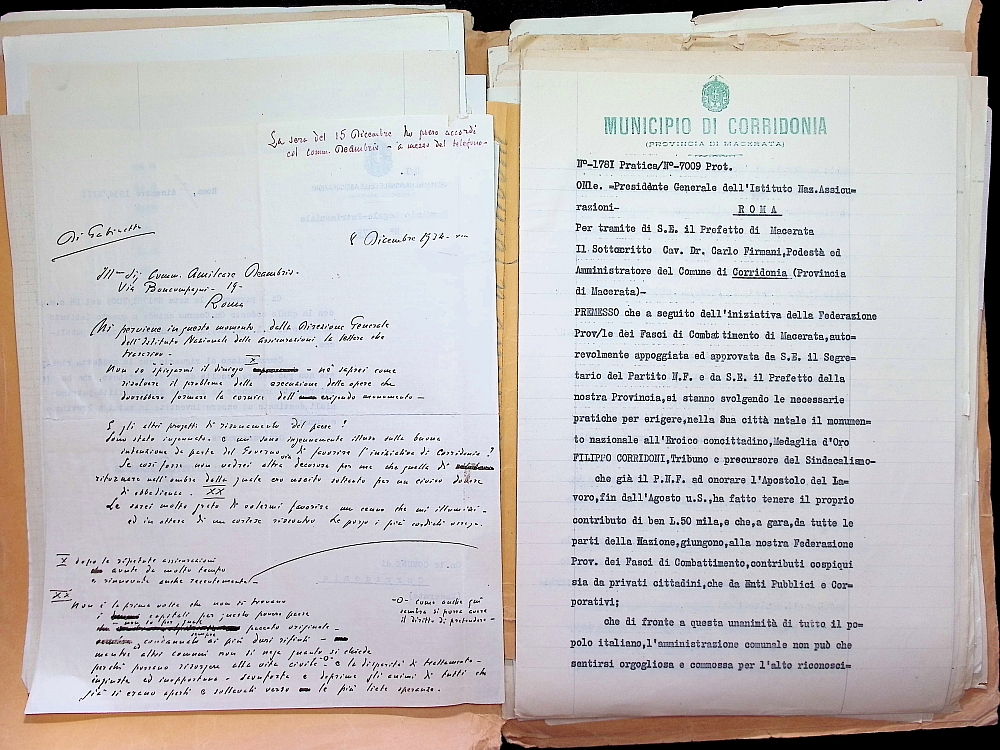 La sera del 15 Dicembre ho preso accordi
col comm. Deambris - a mezzo del telefono -
Di Gabinetto
8 Dicembre 1934 - XIII
Ill- Sig. Comm. Amilcare Deambris -
Via Boncompagni - 19 -
Roma
Mi perviene in questo momento dalla Direzione Generale
dell'Istituto Nazionale delle assicurazioni la lettera che
trascrivo -
Non so spiegarmi il diniego X - né saprei come
risolvere il problema della esecuzione delle opere che
dovrebbero formare la cornice dell' erigendo monumento -
E gli altri progetti di risanamento del paese?
Sono stato ingannato e mi sono ingenuamente illuso sulla buona
intenzione da parte del Governo di favorire l'iniziativa di Corridonia?
Se così fosse non vedrei altra decorosa per me che quella di
ritornare nell'ombra dalla quale ero uscito soltanto per un civico dovere
di obbedienza. XX
Le sarei molto grato di volermi favorire un cenno che mi illumini -
ed in attesa di un cortese riscontro Le porgo i più cordiali ossequi.
X dopo le ripetute assicurazioni
avute da molto tempo
e rinnovate anche recentemente -
XX Non è la prima volta che non si trovano
i capitali per questo povero paese
peccato originale -
condannato sempre ai più duri rifiuti -
mentre altri comuni non si nega quanto si chiede
perché possano risorgere alla vita civile -o- e la disparità di trattamento -
ingiusta ed inopportuna - sconforta e deprime gli animi di tutti che
già si erano aperti e sollevati verso le più liete speranze.
-o- come anche qui
sembra si possa avere
il diritto di pretendere -
MUNICIPIO DI CORRIDONIA
(PROVINCIA DI MACERATA)
N°-1781 Pratica/N°-7009 Prot.
ONle. =Presidènte Generale dell'Istituto Naz.Assicu=
razioni- ROMA
Per tramite di S.E. il Prefetto di Macerata
Il Sottoscritto Cav. Dr. Carlo Firmani,Podestà ed
Amministratore del Comune di Corridonia (Provincia
di Macerata)-
PREMESSO che a seguito dell'iniziativa della Federazione
Prov/le dei Fasci di Combattimento di Macerata,auto=
revolmente appoggiata ed approvata da S.E. il Segre=
tario del Partito N.F. e da S.E. il Prefetto della
nostra Provincia,si stanno svolgendo le necessarie
pratiche per erigere,nella Sua città natale il monumen=
to nazionale all'Eroico concittadino,Medaglia d'Oro
FILIPPO CORRIDONI,Tribuno e precursore del Sindacalismo-
che già il P.N.F ad onorare l'Apostolo del La=
voro,fin dall'Agosto u.S.,ha fatto tenere il proprio
contributo di ben L.50 mila,e che,a gara,da tutte le
parti della Nazione,giungono,alla nostra Federazione
Prov. dei Fasci di Combattimento,contributi cospiqui
sia da privati cittadini,che da Enti Pubblici e Cor=
porativi;
che di fronte a questa unanimità di tutto il po=
polo italiano,l'amministrazione comunale non può che
sentirsi orgogliosa e commossa per l'alto riconosci=